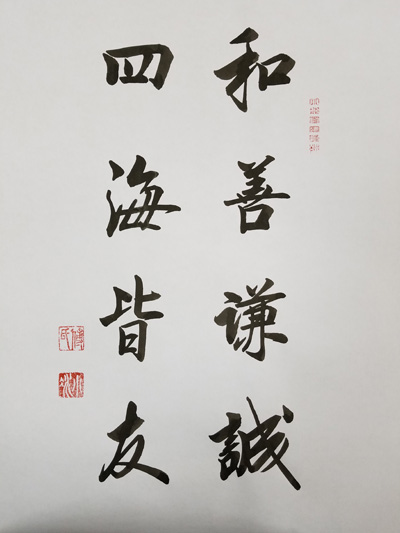 和善謙誠
四海皆友